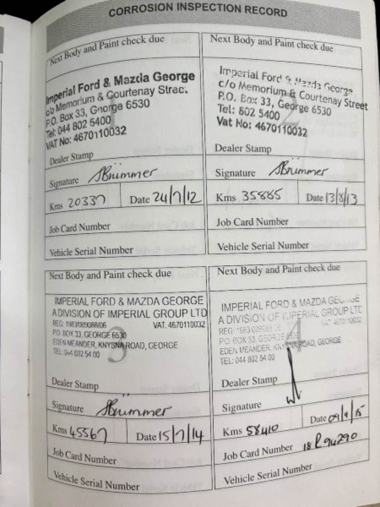 CORROSION INSPECTION RECORD
Next Body and Paint check due
Imperial Ford & Mazda George
c/o Memorium & Courtenay Street
P.O. Box 33, George 6530
Tel: 044 802 5400
VAT No: 4670110032
1
Dealer Stamp
Signature SBrümmer
Kms 20337 Date 24/7/12
Job Card Number
Vehicle Serial Number
Next Body and Paint check due
Imperial Ford & Mazda George
c/o Memorium & Courtenay Street
P.O. Box 33, George 6530
Tel: 802 5400
Vat No: 4670110032
2
Dealer Stamp
Signature SBrümmer
Kms 35885 Date 13/8/13
Job Card Number
Vehicle Serial Number
Next Body and Paint check due
IMPERIAL FORD & MAZDA GEORGE
A DIVISION OF IMPERIAL GROUP LTD
VAT. 4670110032
P.O. BOX 33, GEORGE 6530
EDEN MEANDER, KNYSNA ROAD, GEORGE
TEL: 044 802 54 00
3
Dealer Stamp
Signature SBrümmer
Kms 45567 Date 15/7/14
Job Card Number
Vehicle Serial Number
Next Body and Paint check due
IMPERIAL FORD & MAZDA GEORGE
A DIVISION OF IMPERIAL GROUP LTD
VAT. 4670110032
P.O. BOX 33, GEORGE
EDEN MEANDER, KNYSNA ROAD, GEORGE
TEL: 044 802 54 00
4
Dealer Stamp
Signature
Kms 58410 Date
Job Card Number
Vehicle Serial Number